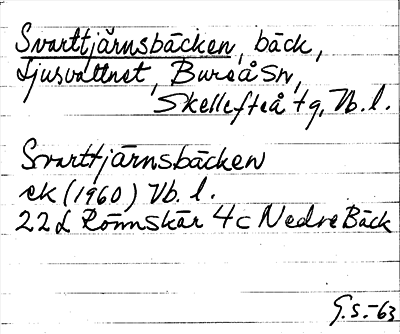 Svarttjärnsbäcken, bäck,
Ljusvattnet, Bureå Sn,
Skellefteå tg, Vb. l.
Svarttjärnsbäcken
ek (1960) Vb. l.
22 L Rönnskär 4c Nedre Bäck
G.S.-63